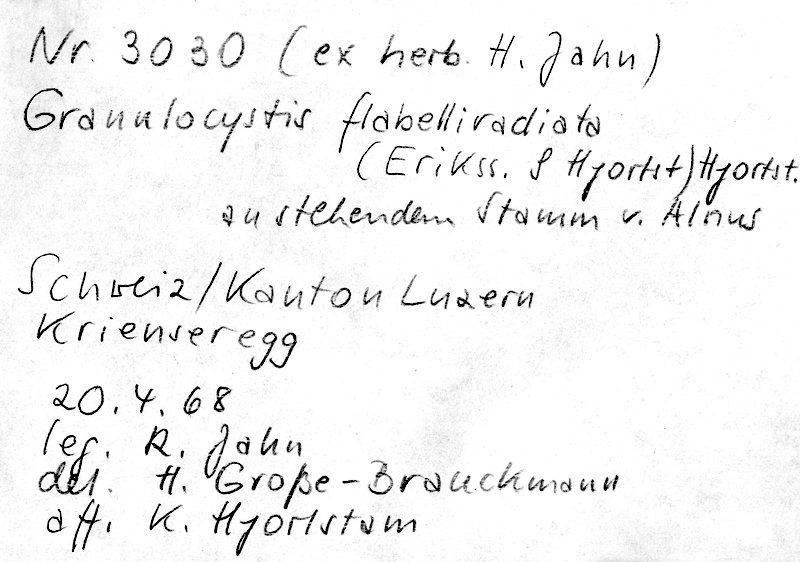 Nr. 3030 (ex herb. H. Jahn)
Granulocystis flabelliradiata
(Erikss. & Hjortst) Hjortst.
an stehendem Stamm v. Alnus
Schweiz/Kanton Luzern
Krienseregg
20.4.68
leg. R. Jahn
det. H. Große-Brauckmann
aff. K. Hjortstam